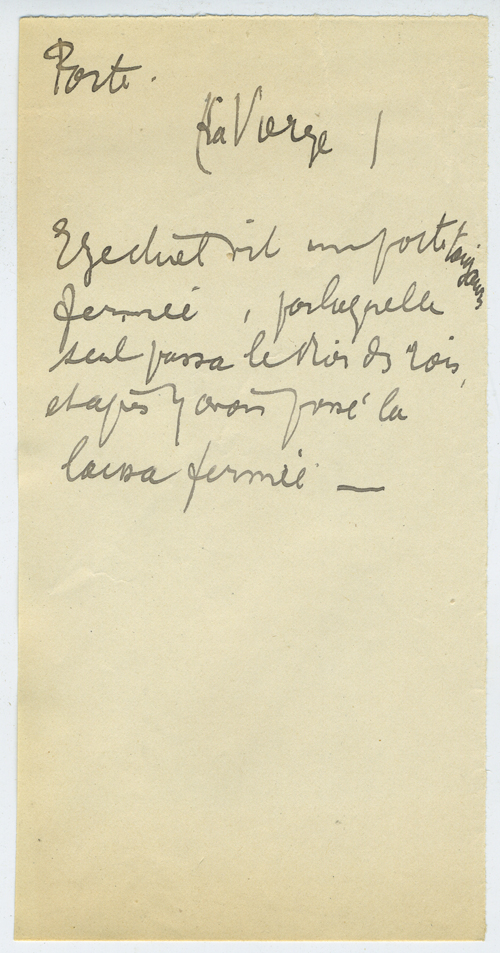 Porte.
(La Vierge)
Ezechiel vit une porte toujours
fermée, par laquelle
seul passa le Roi des rois,
et après y avoir passé la
laissa fermée —